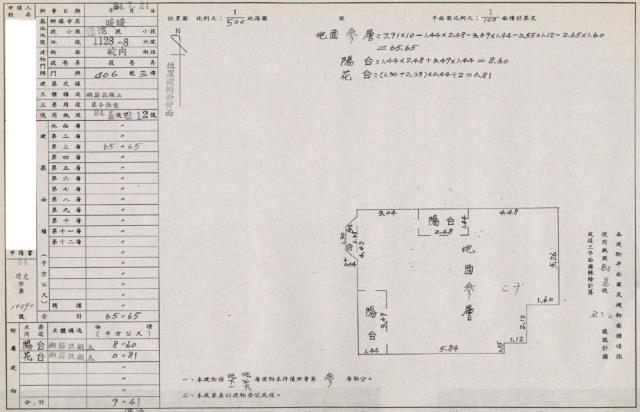 申請人
姓名
測量日期
年7月21
基地座落
鄉鎮市區
暖暖
段小段
段 小段
地號
1128-8 地號
建物門牌
街路
碇內 街路
段巷弄
段巷弄
門牌
406 號三樓
建築式樣
主體構造
鋼筋混凝土
主要用途
集合住宅
使用執照
號
建築面積(平方公尺)
地面層
第二層
第三層
65.65
第四層
第五層
第六層
第七層
第八層
第九層
第十層
第十一層
第十二層
騎樓
合計
65.65
申請書
字第
號
附屬建物
主要用途
主體構造
面積(平方公尺)
陽台
鋼筋混凝土
8.60
花台
鋼筋混凝土
0.81
合計
9.41
位置圖 比例尺:1/500 地籍圖
號
平面圖比例尺:1/100 面積計算式
N
位置圖附於背面
地面參層=7.91×10-1.44×2.48-3.49×1.44-0.55×1.12-2.65×1.60
=65.65
陽台=1.44×2.48+3.49×1.44=8.60
花台=(1.30+2.39)×0.44÷2=0.81
3.04
陽台
2.48
1.44
4.48
花台
4.42
地面參層
5.26
1.60
陽台
3.49
2.10
1.12
1.44
5.84
一、本建物係 層建物本件僅測量第參層部分。
二、本成果表以建物登記為限。
本建物平面圖及建物面積係依
使用執照 號設計圖
或竣工平面圖轉繪計算